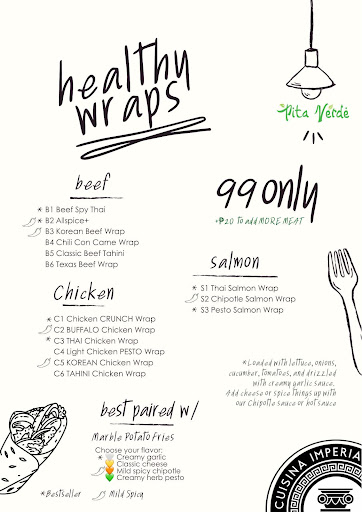 healthy
wraps
Pita Verdé
beef
* B1 Beef Spy Thai
* B2 Allspice+
B3 Korean Beef Wrap
B4 Chili Con Carne Wrap
B5 Classic Beef Tahini
B6 Texas Beef Wrap
99 only
+₱20 to add MORE MEAT
salmon
* S1 Thai Salmon Wrap
S2 Chipotle Salmon Wrap
* S3 Pesto Salmon Wrap
Chicken
* C1 Chicken CRUNCH Wrap
C2 BUFFALO Chicken Wrap
* C3 THAI Chicken Wrap
C4 Light Chicken PESTO Wrap
C5 KOREAN Chicken Wrap
C6 TAHINI Chicken Wrap
*Loaded with lettuce, onions,
cucumber, tomatoes, and drizzled
with creamy garlic sauce.
Add cheese or spice things up with
our Chipotle sauce or hot sauce
best paired w/
Marble Potato Fries
Choose your flavor:
* Creamy garlic
Classic cheese
Mild spicy chipotle
Creamy herb pesto
*Bestseller
Mild Spicy
CUISINA IMPERIA